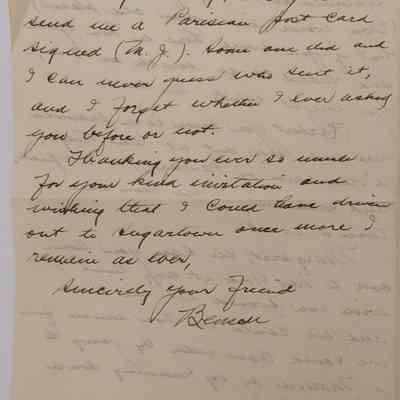 send me a Parisian post card
signed (M. J.). Some one did and
I can never guess who sent it,
and I forget whether I ever asked
you before or not.
Thanking you ever so much
for your kind invitation and
wishing that I could have driven
out to Sugartown once more I
remain as ever,
Sincerely your Friend